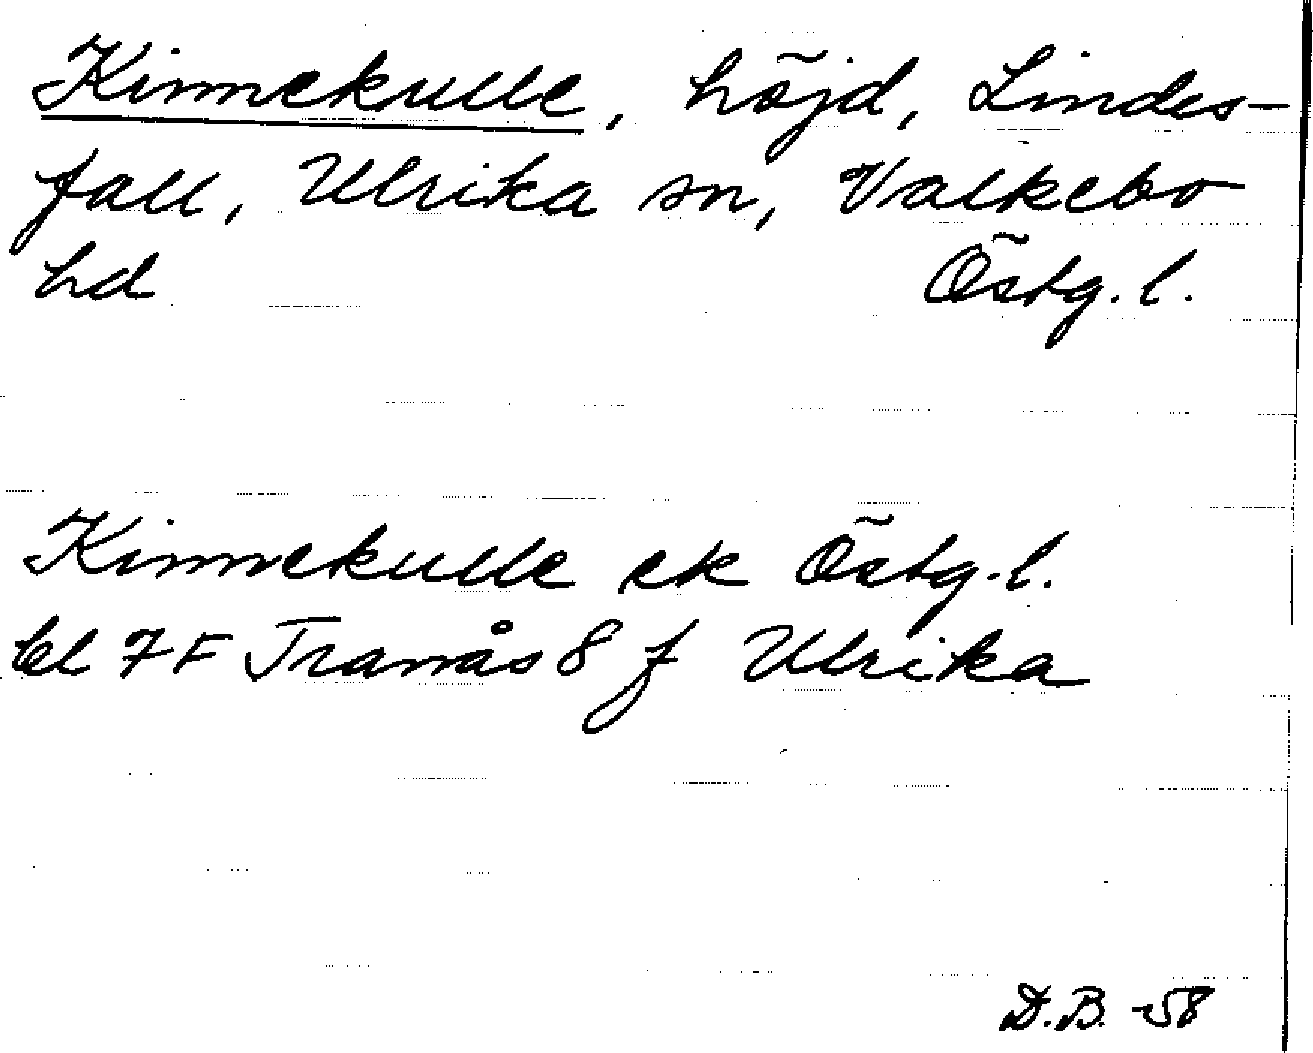 Kinnekulle, höjd, Lindes-
fall, Ulrika sn, Valkebo
hd Östg. l.
Kinnekulle ek Östg. l.
bl 7 F Tranås 8 f Ulrika
D.B. -58